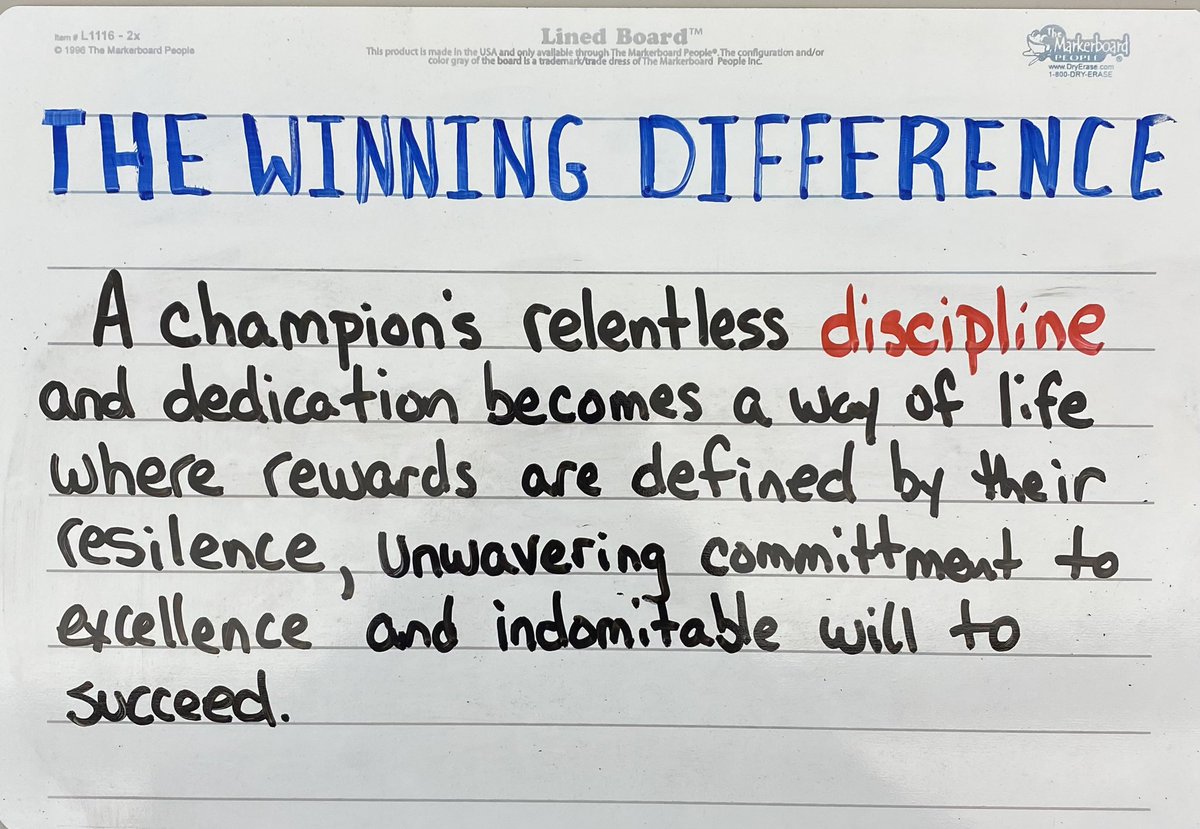 Item # L1116 - 2x
© 1996 The Markerboard People
Lined Board™
This product is made in the USA and only available through The Markerboard People®. The configuration and/or
color gray of the board is a trademark/trade dress of The Markerboard People Inc.
The
Markerboard
PEOPLE®
www.DryErase.com
1-800-DRY-ERASE
THE WINNING DIFFERENCE
A champion's relentless discipline
and dedication becomes a way of life
where rewards are defined by their
resilence, unwavering committment to
excellence and indomitable will to
succeed.